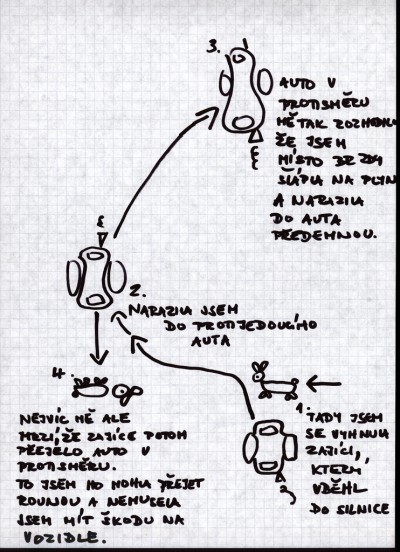 3.
AUTO V
PROTISMĚRU
MĚ TAK ROZHODILO
ŽE JSEM
MÍSTO BRZDY
ŠLÁPLA NA PLYN
A NARAZILA
DO AUTA
PŘEDEMNOU.
2.
NARAZILA JSEM
DO PROTIJEDOUCÍHO
AUTA
1.
TADY JSEM
SE VYHNULA
ZAJÍCI,
KTERÝ
VBĚHL
DO SILNICE
4.
NEJVÍC MĚ ALE
MRZÍ, ŽE ZAJÍCE POTOM
PŘEJELO AUTO V
PROTISMĚRU.
TO JSEM HO MOHLA PŘEJET
ROUNOU A NEMUSELA
JSEM MÍT ŠKODU NA
VOZIDLE.